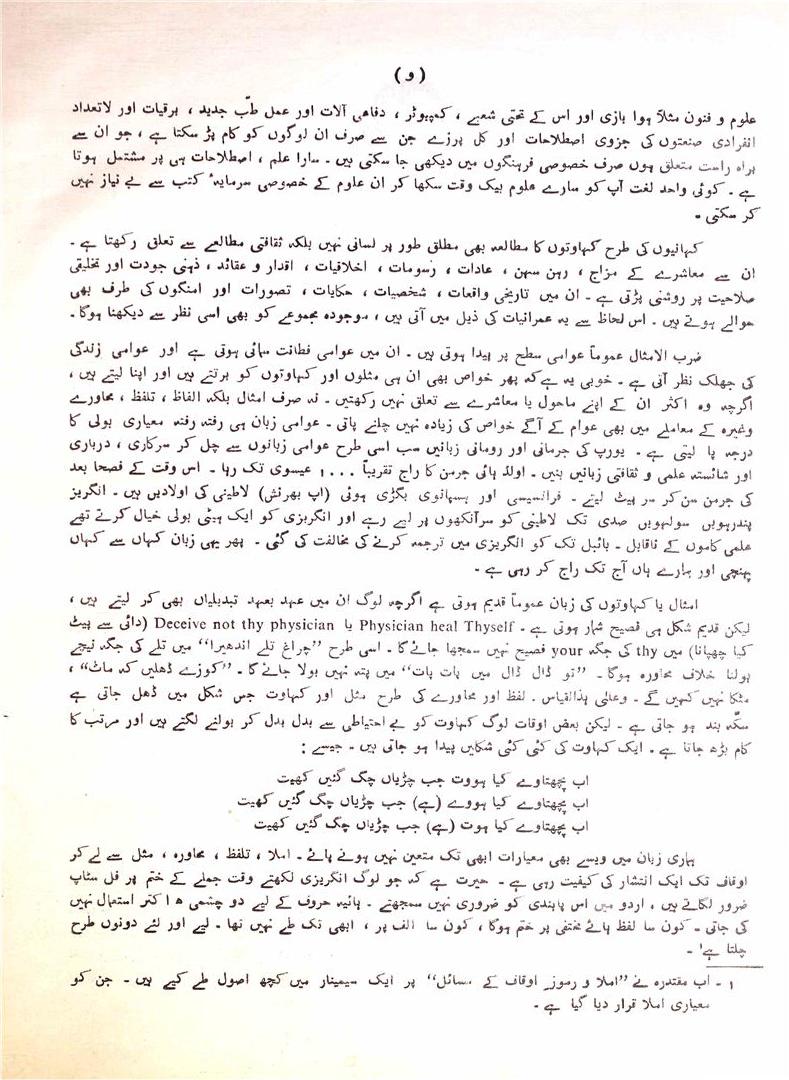 ( و )
علوم و فنون مثلاً ہوا بازی اور اس کے تحتی شعبے ، کمپیوٹر ، دفاعی آلات اور عمل طبّ جدید ، برقیات اور لاتعداد
انفرادی صنعتوں کی جزوی اصطلاحات اور کل پرزے جن سے صرف ان لوگوں کو کام پڑ سکتا ہے ، جو ان سے
براہ راست متعلق ہوں صرف خصوصی فرہنگوں میں دیکھی جا سکتی ہیں ۔ سارا علم ، اصطلاحات ہی پر مشتمل ہوتا
ہے ۔ کوئی واحد لغت آپ کو سارے علوم بیک وقت سکھا کر ان علوم کے خصوصی سرمایۂ کتب سے بے نیاز نہیں
کر سکتی ۔
کہانیوں کی طرح کہاوتوں کا مطالعہ بھی مطلق طور پر لسانی نہیں بلکہ ثقافتی مطالعے سے تعلق رکھتا ہے ۔
ان سے معاشرے کے مزاج ، رہن سہن ، عادات ، رسومات ، اخلاقیات ، اقدار و عقائد ، ذہنی جودت اور تخلیقی
صلاحیت پر روشنی پڑتی ہے ۔ ان میں تاریخی واقعات ، شخصیات ، حکایات ، تصورات اور امنگوں کی طرف بھی
حوالے ہوتے ہیں ۔ اس لحاظ سے یہ عمرانیات کی ذیل میں آتی ہیں ، موجودہ مجموعے کو بھی اسی نظر سے دیکھنا ہوگا ۔
ضرب الامثال عموماً عوامی سطح پر پیدا ہوتی ہیں ۔ ان میں عوامی فطانت سمائی ہوتی ہے اور عوامی زندگی
کی جھلک نظر آتی ہے ۔ خوبی یہ ہے کہ پھر خواص بھی ان ہی مثلوں اور کہاوتوں کو برتتے ہیں اور اپنا لیتے ہیں ،
اگرچہ وہ اکثر ان کے اپنے ماحول یا معاشرے سے تعلق نہیں رکھتیں ۔ نہ صرف امثال بلکہ الفاظ ، تلفظ ، محاورے
وغیرہ کے معاملے میں بھی عوام کے آگے خواص کی زیادہ نہیں چلنے پاتی ۔ عوامی زبان ہی رفتہ رفتہ معیاری بولی کا
درجہ پا لیتی ہے ۔ یورپ کی جرمانی اور رومانی زبانیں سب اسی طرح عوامی زبانوں سے چل کر سرکاری ، درباری
اور شائستہ علمی و ثقافتی زبانیں بنیں ۔ اولڈ ہائی جرمن کا راج تقریباً ۱۰۰۰ عیسوی تک رہا ۔ اس وقت کے فصحا بعد
کی جرمن سن کر سر پیٹ لیتے ۔ فرانسیسی اور ہسپانوی بگڑی ہوئی (اپ بھرنش) لاطینی کی اولادیں ہیں ۔ انگریز
پندرہویں سولہویں صدی تک لاطینی کو سرآنکھوں پر لیے رہے اور انگریزی کو ایک ہیٹی بولی خیال کرتے تھے
علمی کاموں کے ناقابل ۔ بائبل تک کو انگریزی میں ترجمہ کرنے کی مخالفت کی گئی ۔ پھر یہی زبان کہاں سے کہاں
پہنچی اور ہمارے ہاں آج تک راج کر رہی ہے ۔
امثال یا کہاوتوں کی زبان عموماً قدیم ہوتی ہے اگرچہ لوگ ان میں عہد بعہد تبدیلیاں بھی کر لیتے ہیں ،
لیکن قدیم شکل ہی فصیح شمار ہوتی ہے ۔ Physician heal Thyself یا Deceive not thy physician (دائی سے پیٹ
کیا چھپانا) میں thy کی جگہ your فصیح نہیں سمجھا جائے گا ۔ اسی طرح ’’چراغ تلے اندھیرا‘‘ میں تلے کی جگہ نیچے
بولنا خلاف محاورہ ہوگا ۔ ’’تو ڈال ڈال میں پات پات‘‘ میں پتہ نہیں بولا جائے گا ۔ ’’کوزے ڈھلیں کہ ماٹ‘‘ ،
مٹکا نہیں کہیں گے ۔ وعلیٰ ہذالقیاس ۔ لفظ اور محاورے کی طرح مثل اور کہاوت جس شکل میں ڈھل جاتی ہے
سکّہ بند ہو جاتی ہے ۔ لیکن بعض اوقات لوگ کہاوت کو بے احتیاطی سے بدل بدل کر بولنے لگتے ہیں اور مرتب کا
کام بڑھ جاتا ہے ۔ ایک کہاوت کی کئی کئی شکلیں پیدا ہو جاتی ہیں ۔ جیسے :
اب پچھتاوے کیا ہووت جب چڑیاں چگ گئیں کھیت
اب پچھتاوے کیا ہووے (ہے) جب چڑیاں چگ گئیں کھیت
اب پچھتاوے کیا ہوت (ہے) جب چڑیاں چگ گئیں کھیت
ہماری زبان میں ویسے بھی معیارات ابھی تک متعین نہیں ہونے پائے ۔ املا ، تلفظ ، محاورہ ، مثل سے لے کر
اوقاف تک ایک انتشار کی کیفیت رہی ہے ۔ حیرت ہے کہ جو لوگ انگریزی لکھتے وقت جملے کے ختم پر فل سٹاپ
ضرور لگاتے ہیں ، اردو میں اس پابندی کو ضروری نہیں سمجھتے ۔ ہائیہ حروف کے لیے دو چشمی ھ اکثر استعمال نہیں
کی جاتی ۔ کون سا لفظ ہائے مختفی پر ختم ہوگا ، کون سا الف پر ، ابھی تک طے نہیں تھا ۔ لیے اور لئے دونوں طرح
چلتا ہے۱ ۔
۱ ۔ اب مقتدرہ نے ’’املا و رموز اوقاف کے مسائل‘‘ پر ایک سیمینار میں کچھ اصول طے کیے ہیں ۔ جن کو
معیاری املا قرار دیا گیا ہے ۔